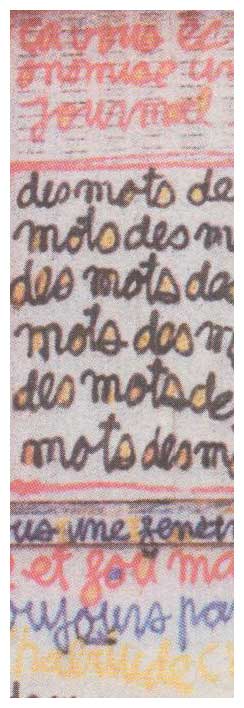 journal
des mots de
mots des m
des mots des
mots des m
des mots de
mots des m
us une fenetr
et fou ma
oujours pa